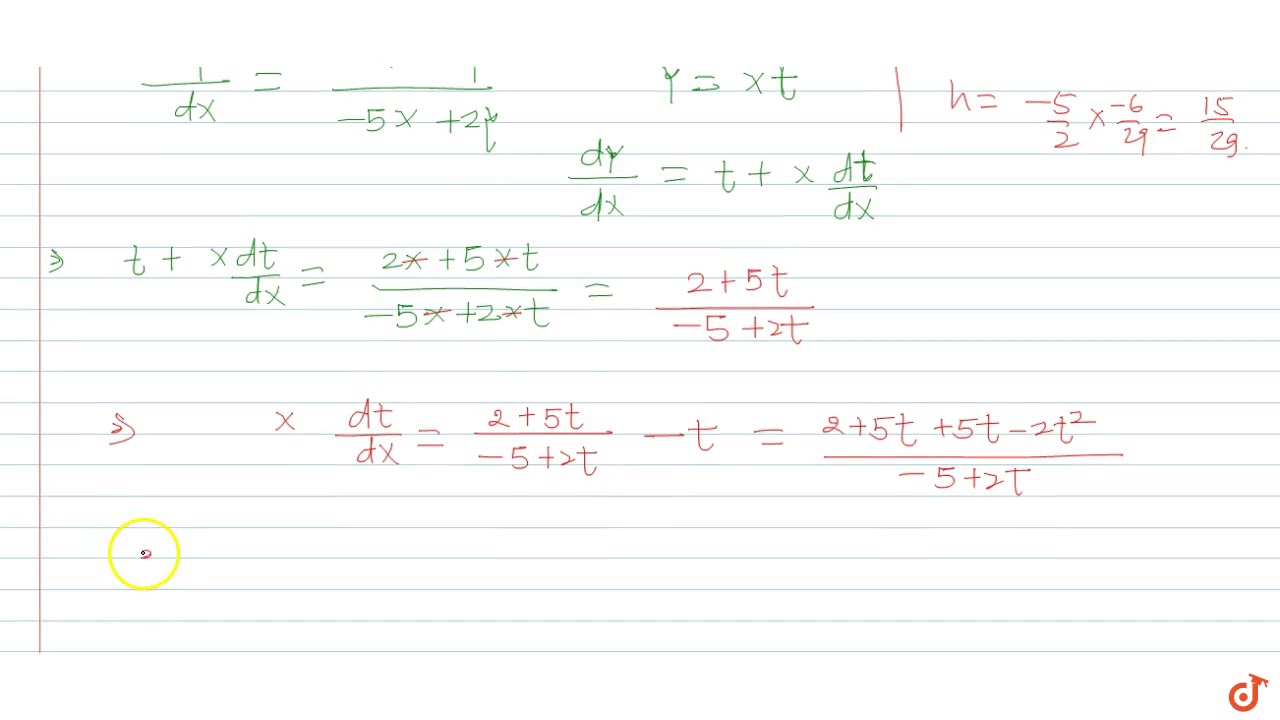 dx = -5X + 2Y
Y = Xt
h = -5/2 × -6/29 = 15/29.
dY/dX = t + X dt/dX
⇒ t + X dt/dX = 2X + 5Xt / -5X + 2Xt = 2 + 5t / -5 + 2t
⇒ X dt/dX = 2 + 5t / -5 + 2t - t = 2 + 5t + 5t - 2t² / -5 + 2t